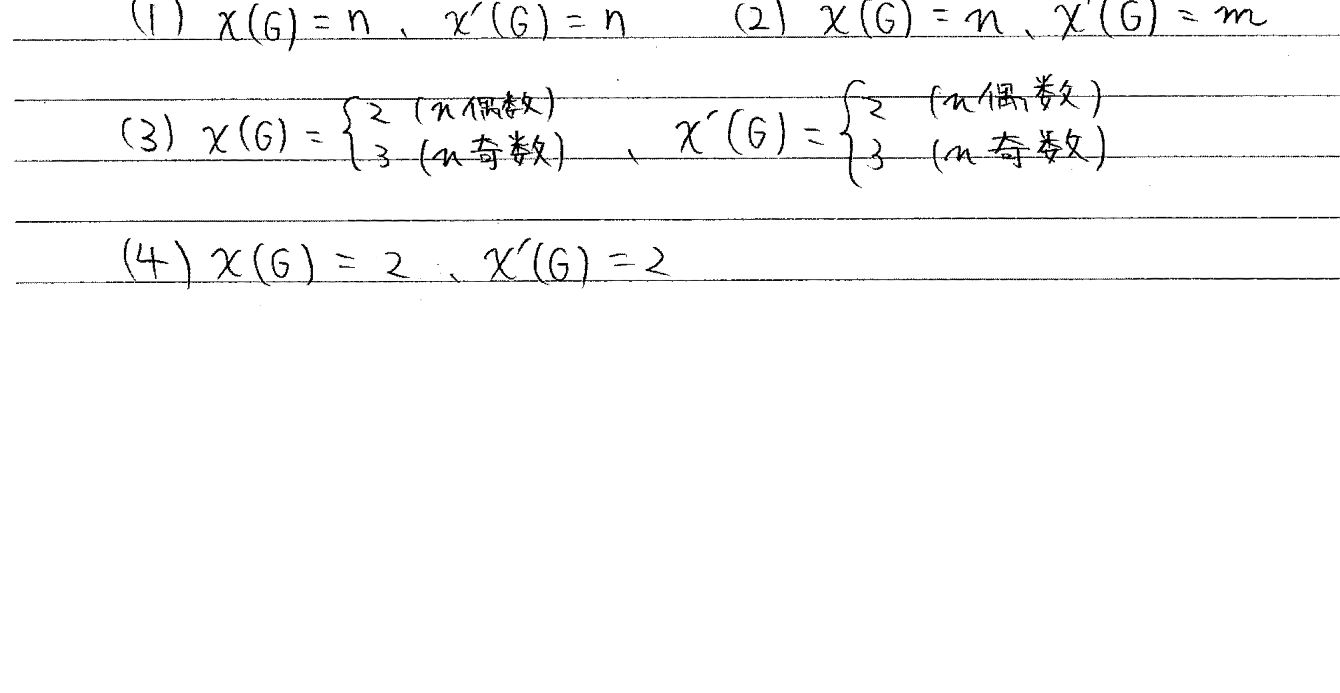 (1) χ(G) = n、χ′(G) = n (2) χ(G) = n、χ′(G) = m
(3) χ(G) = { 2 (n 偶数) 3 (n 奇数) 、χ′(G) = { 2 (n 偶数) 3 (n 奇数)
(4) χ(G) = 2、χ′(G) = 2